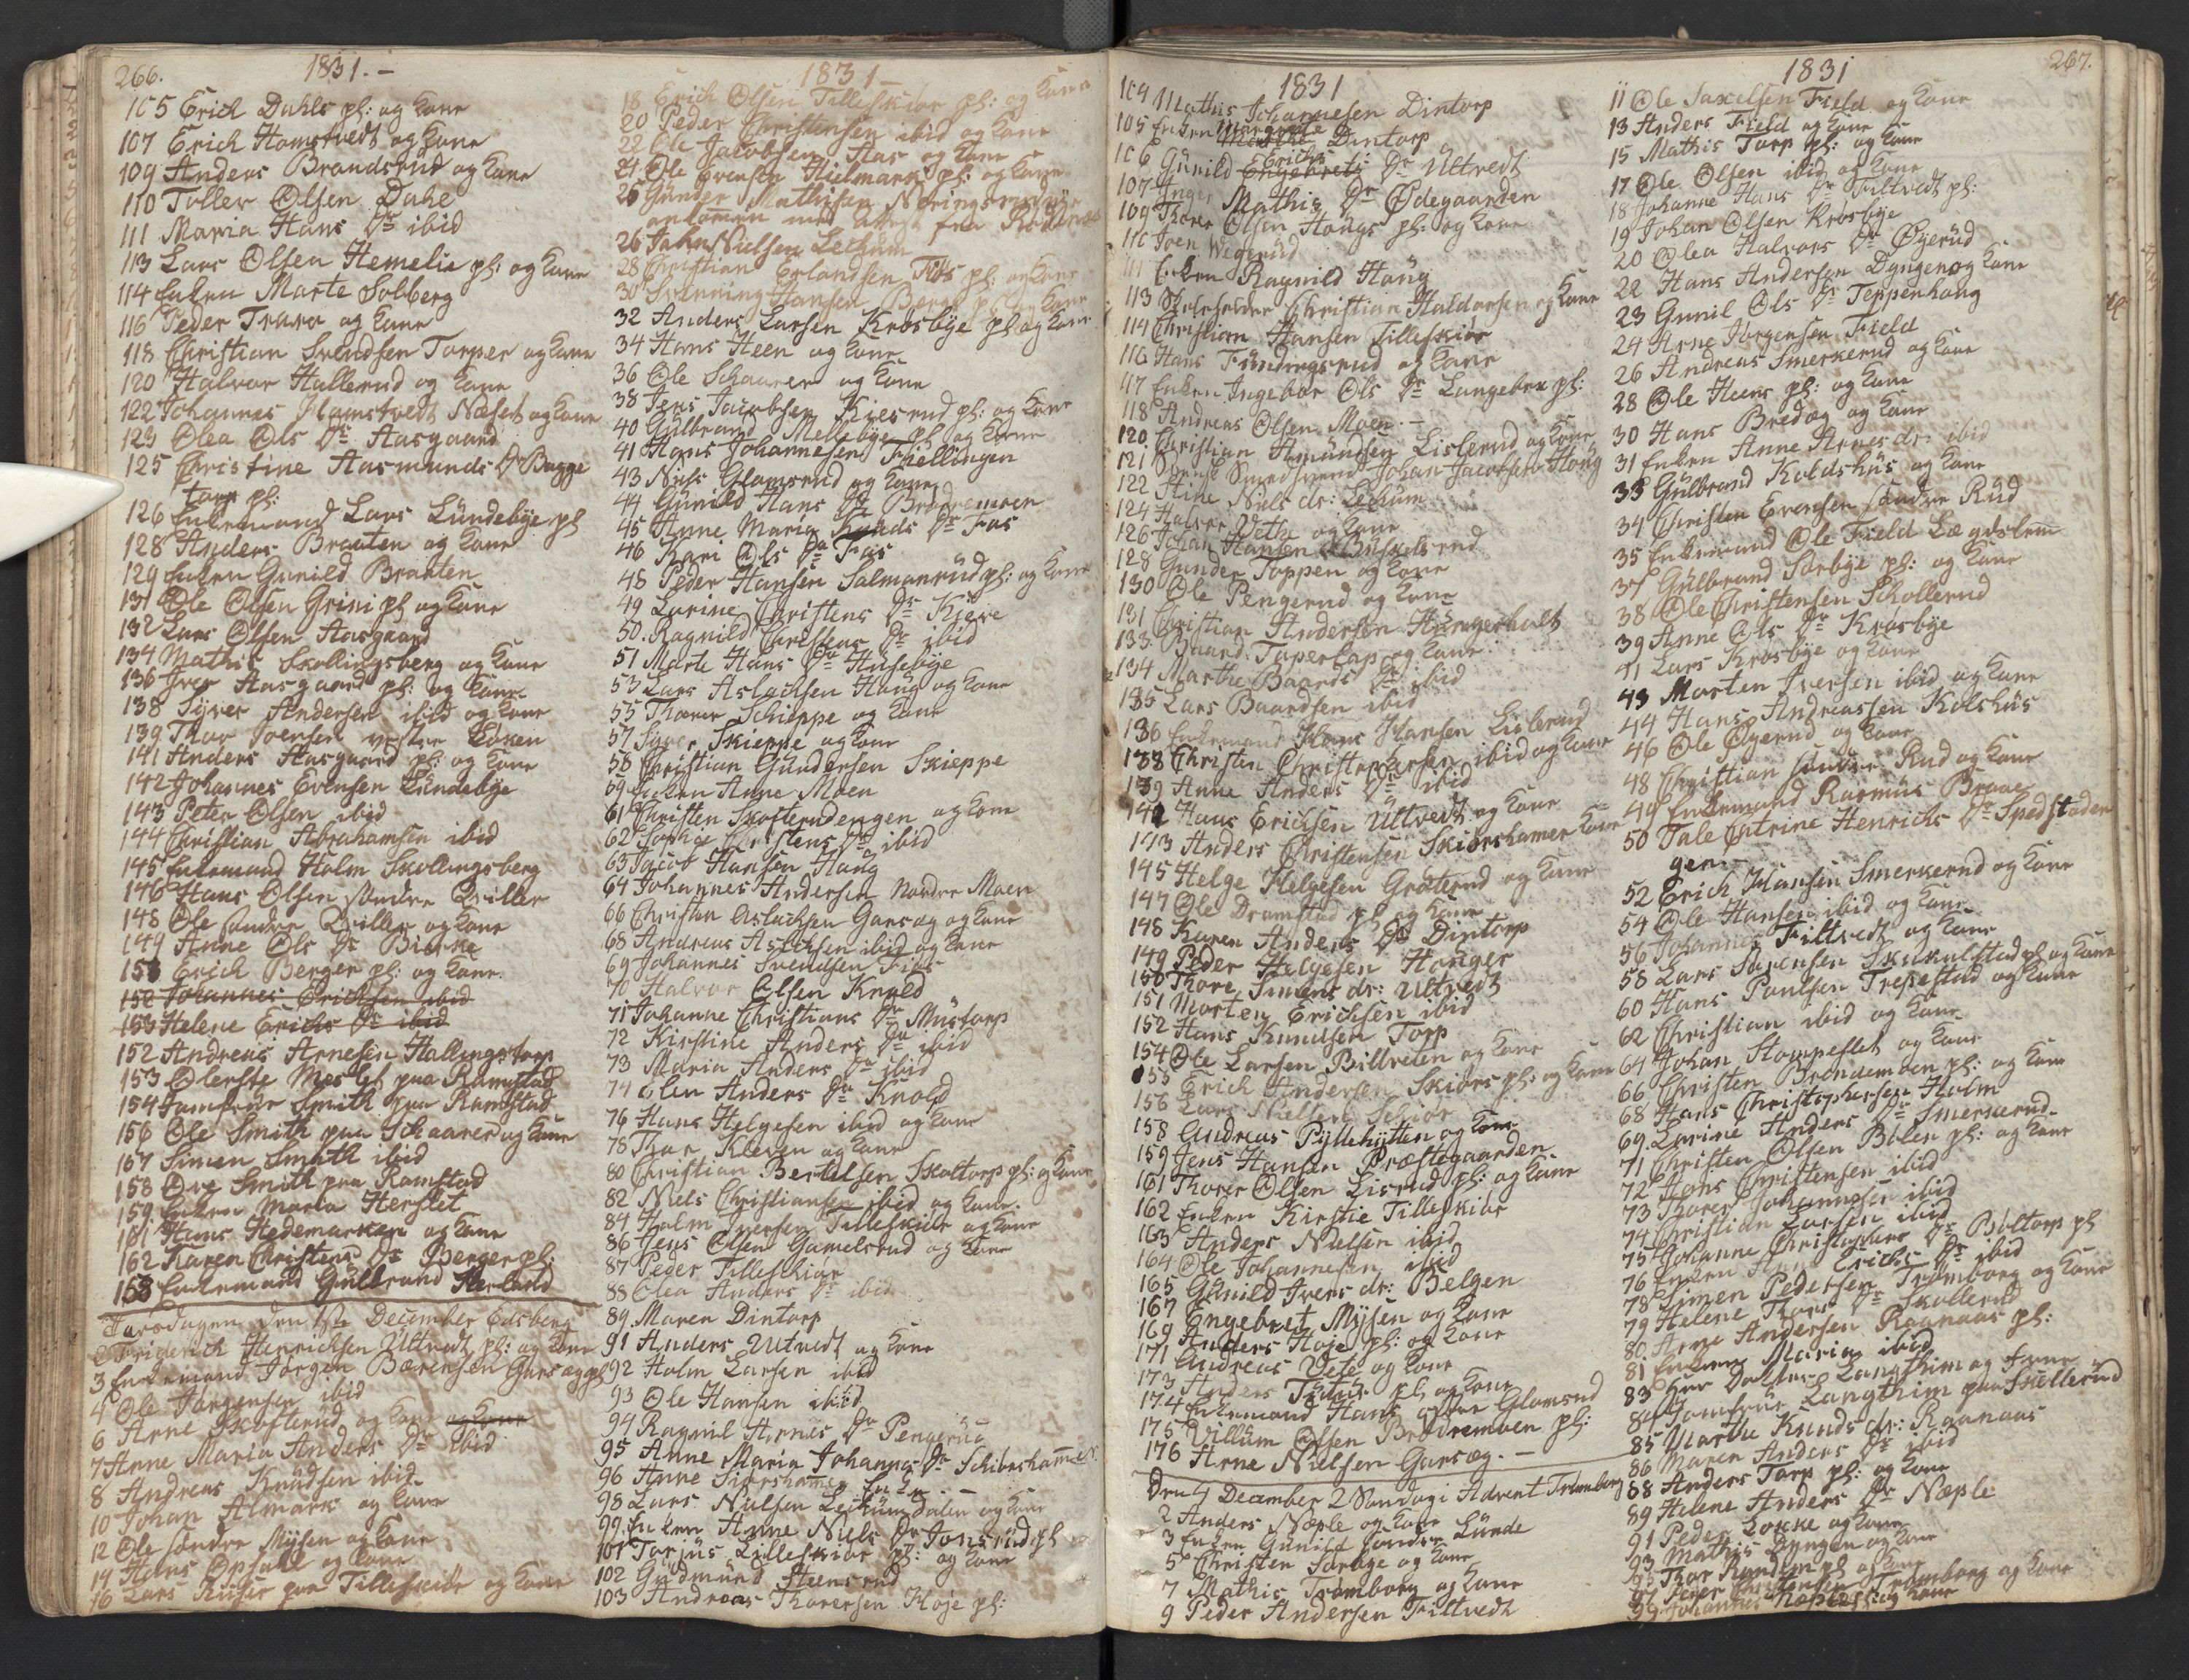 266.
1831.-
105 Erich Dahls pl: og Kone
107 Erich Homstvedt og Kone
109 Anders Brandsrud og Kone
110 Toller Olsen Dahl
111 Maria Hans Dr ibid
113 Lars Olsen Hemelie pl: og Kone
114 Enken Marte Solberg
116 Peder Trara og Kone
118 Christian Svendsen Torper og Kone
120 Halvor Hallerud og Kone
122 Johannes Homstvedt og Kone
123 Olea Ols Dr Aasgaard
125 Christine Aasmunds Dr Bagge
torp pl:
126 Enkemand Lars Lundebye pl
128 Anders Braaten og Kone
129 Enken Gunild Braaten
131 Ole Olsen Grini pl og Kone
132 Lars Olsen Aasgaard
134 Mathis Skollingsberg og Kone
136 Iver Aasgaard pl: og Kone
138 Syver Andersen ibid og Kone
139 Thor Joensen vestre Loken
141 Anders Aasgaard pl: og Kone
142 Johannes Evensen Lundebye
143 Peter Olsen ibid
144 Christian Abrahamsen ibid
145 Enkemand Holm Skollingsberg
146 Hans Olsen søndre Qviller
148 Ole søndre Qviller og Kone
149 Anne Ols Dr Bierke
151 Erich Berger pl: og Kone
152 Johannes Erichsen ibid
153 Helene Erichs Dr ibid
152 Andreas Arnesen Hallingstorp
153 Olerste Meslet paa Ramstad
154 Jomfrue Smith paa Ramstad
156 Ole Smith paa Schaarer og Kone
157 Simen Smith ibid
158 Ove Smith paa Ramstad
159 Enken Maria Herslet
161 Hans Hedemarken og Kone
162 Karen Christens Dr Berger pl:
163 Enkemand Gulbrand Herland
Torsdagen den 1ste December Edsberg
2 Friderich Henrichsen Ultvedt pl: og Kone
3 Enkemand Jørgen Bærensen Garsæg pl
4 Ole Jørgensen ibid
6 Arne Skofterud og Kone og Kone
7 Anne Maria Anders Dr ibid
8 Andreas Knudsen ibid
10 Johan Almark og Kone
12 Ole søndre Mysen og Kone
14 Hans Opsahl og Kone
16 Lars paa Tilleskiør og Kone
1831-
18 Erich Olsen Tilleskiør pl: og Kone
20 Peder Christensen ibid og Kone
22 Ole Jacobsen Aas og Kone
24 Ole Evensen Hielmark pl: og Kone
25 Gunder Mathisen
ankomen med attest fra
26 John Nielsen Leckum
28 Christian Erlandsen Fos pl: og Kone
30 Svenning Hansen Berge pl og Kone
32 Anders Larsen Krosbye pl og Kone
34 Hans Heen og Kone
36 Ole Schaarer og Kone
38 Jens Jacobsen Kiesrud pl: og Kone
40 Gulbrand Mellebye pl og Kone
41 Hans Johannesen Fiellingen
43 Niels Glomsrud og Kone
44 Gunild Hans Dr Brødremoen
45 Anne Maria Knuds Dr Fos
46 Kari Ols Dr Fos
48 Peder Hansen Salmanrud pl: og Kone
49 Larine Christens Dr Kiere
50. Ragnild Christens Dr ibid
51 Marte Hans Dr Husebye
53 Lars Aslachsen Houg og Kone
55 Thorer Schieppe og Kone
57 Siver Skieppe og Kone
58 Christian Gundersen Skieppe
59 Enken Anne Moen
61 Christen Skofterudengen og Kone
62 Sophie Christens Dr ibid
63 Jacob Hansen Houg
64 Johannes Andersen Nordre Moen
66 Christen Aslachsen Garsæg og Kone
68 Andreas Aslachsen ibid og Kone
69 Johannes Svendsen Fos
70 Halvor Olsen Knold
71 Johanne Christians Dr Mustorp
72 Kirstine Anders Dr ibid
73 Maria Anders Dr ibid
74 Elen Anders Dr Knold
76 Hans Helgesen ibid og Kone
78 Thor Kleven og Kone
80 Christian Bertelsen Skoltorp pl: og Kone
82 Niels Christiansen ibid og Kone
84 Holm Iversen Tilleskiør og Kone
86 Jens Olsen Gamelsrud og Kone
87 Peder Tilleskiør
88 Olea Anders Dr ibid
89. Maren Dintorp
91 Anders Utvedt og Kone
92 Holm Larsen ibid
93 Ole Hansen ibid
94 Ragnil Arnes Dr Pengerud
95 Anne Maria Johannes Dr Schiørshammer
96 Anne Siørshamer Enke
98 Lars Nielsen Leckumdalen og Kone
99 Enken Anne Niels Dr Jonsrud pl
101 Torjus Lilleskiør pl: og Kone
102 Gudmund Heensrud
103 Andreas Thorersen Høje pl:
267.
1831
104 Mathis Johannesen Dintorp
105 Enken Margrete Marthe Dintorp
106 Gunild Erichs Engebrets Dr Ultvedt
107 Inger Mathis Dr Ødegaarden
109 Thorer Olsen Hougs pl: og Kone
110 Joen Wegerud
111 Enken Ragnild Houg
113 Skoleholder Christian Haldorsen og Kone
114 Christian Hansen Tilleskiør
116 Hans Findingsrud og Kone
117 Enken Ingebor Ols Dr Langebru pl:
118 Andreas Olsen Moen.-
120 Christian Amundsen Lislerud og Kone
121 Smedsvend Johan Jacobsen Houg
122 Stine Niels dr: Leckum
124 Halvor Vethe og Kone
126 Johan Hansen Buskelsrud
128 Gunder Toppen og Kone
130 Ole Pengerud og Kone
131 Christian Andersen Hungerholt
133 Baard Taperlap og Kone
134 Marthe Baards Dr ibid
135 Lars Baardsen ibid
136 Enkemand Hans Hansen Lislerud
138 Christen Christophersen ibid og Kone
139 Anne Anders Dr ibid
141 Hans Erichsen Ultvedt og Kone
143 Anders Christensen Skiørshamer Kone
145 Helge Helgesen Grøterud og Kone
147 Ole Dramstad pl og Kone
148 Karen Anders Dr Dintorp
149 Peder Helgesen Hanger
150 Thore Simens dr: Ultvedt
151 Morten Erichsen ibid
152 Hans Knudsen Torp
154 Ole Larsen Billreten og Kone
155 Erich Andersen Skiørs pl: og Kone
156 Lars Nielsen Schiør
158 Andreas Pyllehytten og Kone
159 Jens Hansen Præstegaarden
161 Thorer Olsen Lisrud pl: og Kone
162 Enken Kirstie Tilleskiør
163 Anders Nielsen ibid
164 Ole Johannesen ibid
165 Gunild Ivers dr: Belgen
167 Engebret Mysen og Kone
169 Anders Hoje pl: og Kone
171 Andreas Vete og Kone
173 Anders pl og Kone
174 Enkemand Hans østre Glomsrud
175 Villum Olsen Brødremoen pl:
176 Arne Nielsen Garsæg.-
Den 4 December 2 Søndag i Advent Trømborg
2 Anders Næple og Kone
3 Enken Gunild søndre Lunde
5 Christen Sørbye og Kone
7 Mathis Trømborg og Kone
9 Peder Andersen Filtvedt
1831
11 Ole Saxelsen Field og Kone
13 Anders Field og Kone
15 Mathis Torp pl: og Kone
17 Ole Olsen ibid og Kone
18 Johanne Hans Dr Filtvedt pl:
19 Johan Olsen Krosbye
20 Olea Halvors Dr Øyerud
22 Hans Andersen Dyngen og Kone
23 Gunil Ols Dr Teppenhoug
24 Arne Jørgensen Field
26 Andreas Smerkerud og Kone
28 Ole Heens pl: og Kone
30 Hans Bredog og Kone
31 Enken Anne Arnes dr: ibid
33 Gulbrand Koldshus og Kone
34 Christen Evensen søndre Rud
35 Enkemand Ole Field Lægdslem
37 Gulbrand Sørbye pl: og Kone
38 Ole Christensen Schollerud
39 Anne Ols Dr Krosbye
41 Lars Krosbye og Kone
43 Morten Iversen ibid og Kone
44 Hans Andreassen Kolshus
46 Ole Øyerud og Kone
48 Christian søndre Rud og Kone
49 Enkemand Rasmus Braae
50 Tale Catrine Henrichs Dr Spedstader
gen.-
52 Erich Hansen Smerkerud og Kone
54 Ole Hansen ibid og Kone
56 Johannes Filtvedt og Kone
58 Lars Sørensen Skukulstad pl og Kone
60 Hans Paulsen Trepestad og Kone
62 Christian ibid og Kone
64 Johan Stompeflet og Kone
66 Christen Brendemoen pl: og Kone
68 Hans Christophersen Holm
69. Larine Anders Dr Smerkerud
71 Christen Olsen Bølen pl: og Kone
72 Hans Christensen ibid
73 Thorer Johannesen ibid
74 Christian Larsen ibid
75 Johanne Christophers Dr Boltorp pl
76 Enken Erichs Dr ibid
78 Simen Pedersen Trømborg og Kone
79 Helene Thors Dr Skollerud
80. Arne Andersen Raanaas pl:
81 Enken Maria ibid
83 Herr Langthim og Frue
84 Jomfrue Langthim paa Skellerud
85 Marthe Knuds dr: Raanaas
86 Maren Anders Dr ibid
88 Anders Torp pl: og Kone
89 Helene Anders Dr Næple
91 Peder Løkke og Kone
93 Mathis Dyngen og Kone
95 Thor Rundem pl og Kone
97 Peder Christensen Trømborg og Kone
99 Johannes Næples pl: og Kone